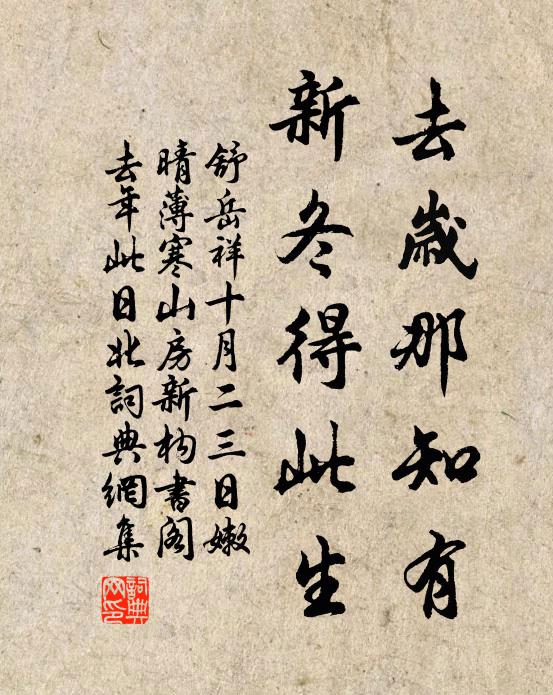 去歲那知有
新冬得此生
舒岳祥十月二三日嫩
晴薄寒山房新构書阁
去年此日北詞典網集
詞典網印